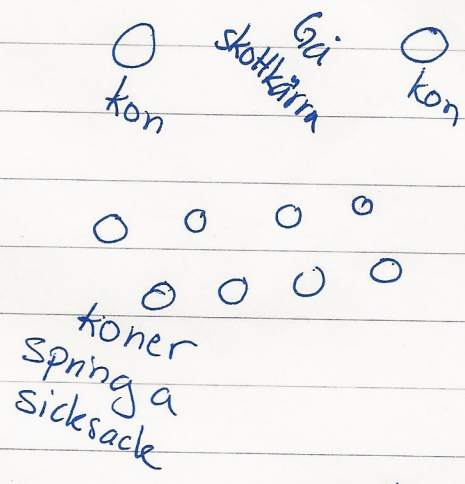 Gå
skottkärra
kon
kon
koner
springa
sicksack